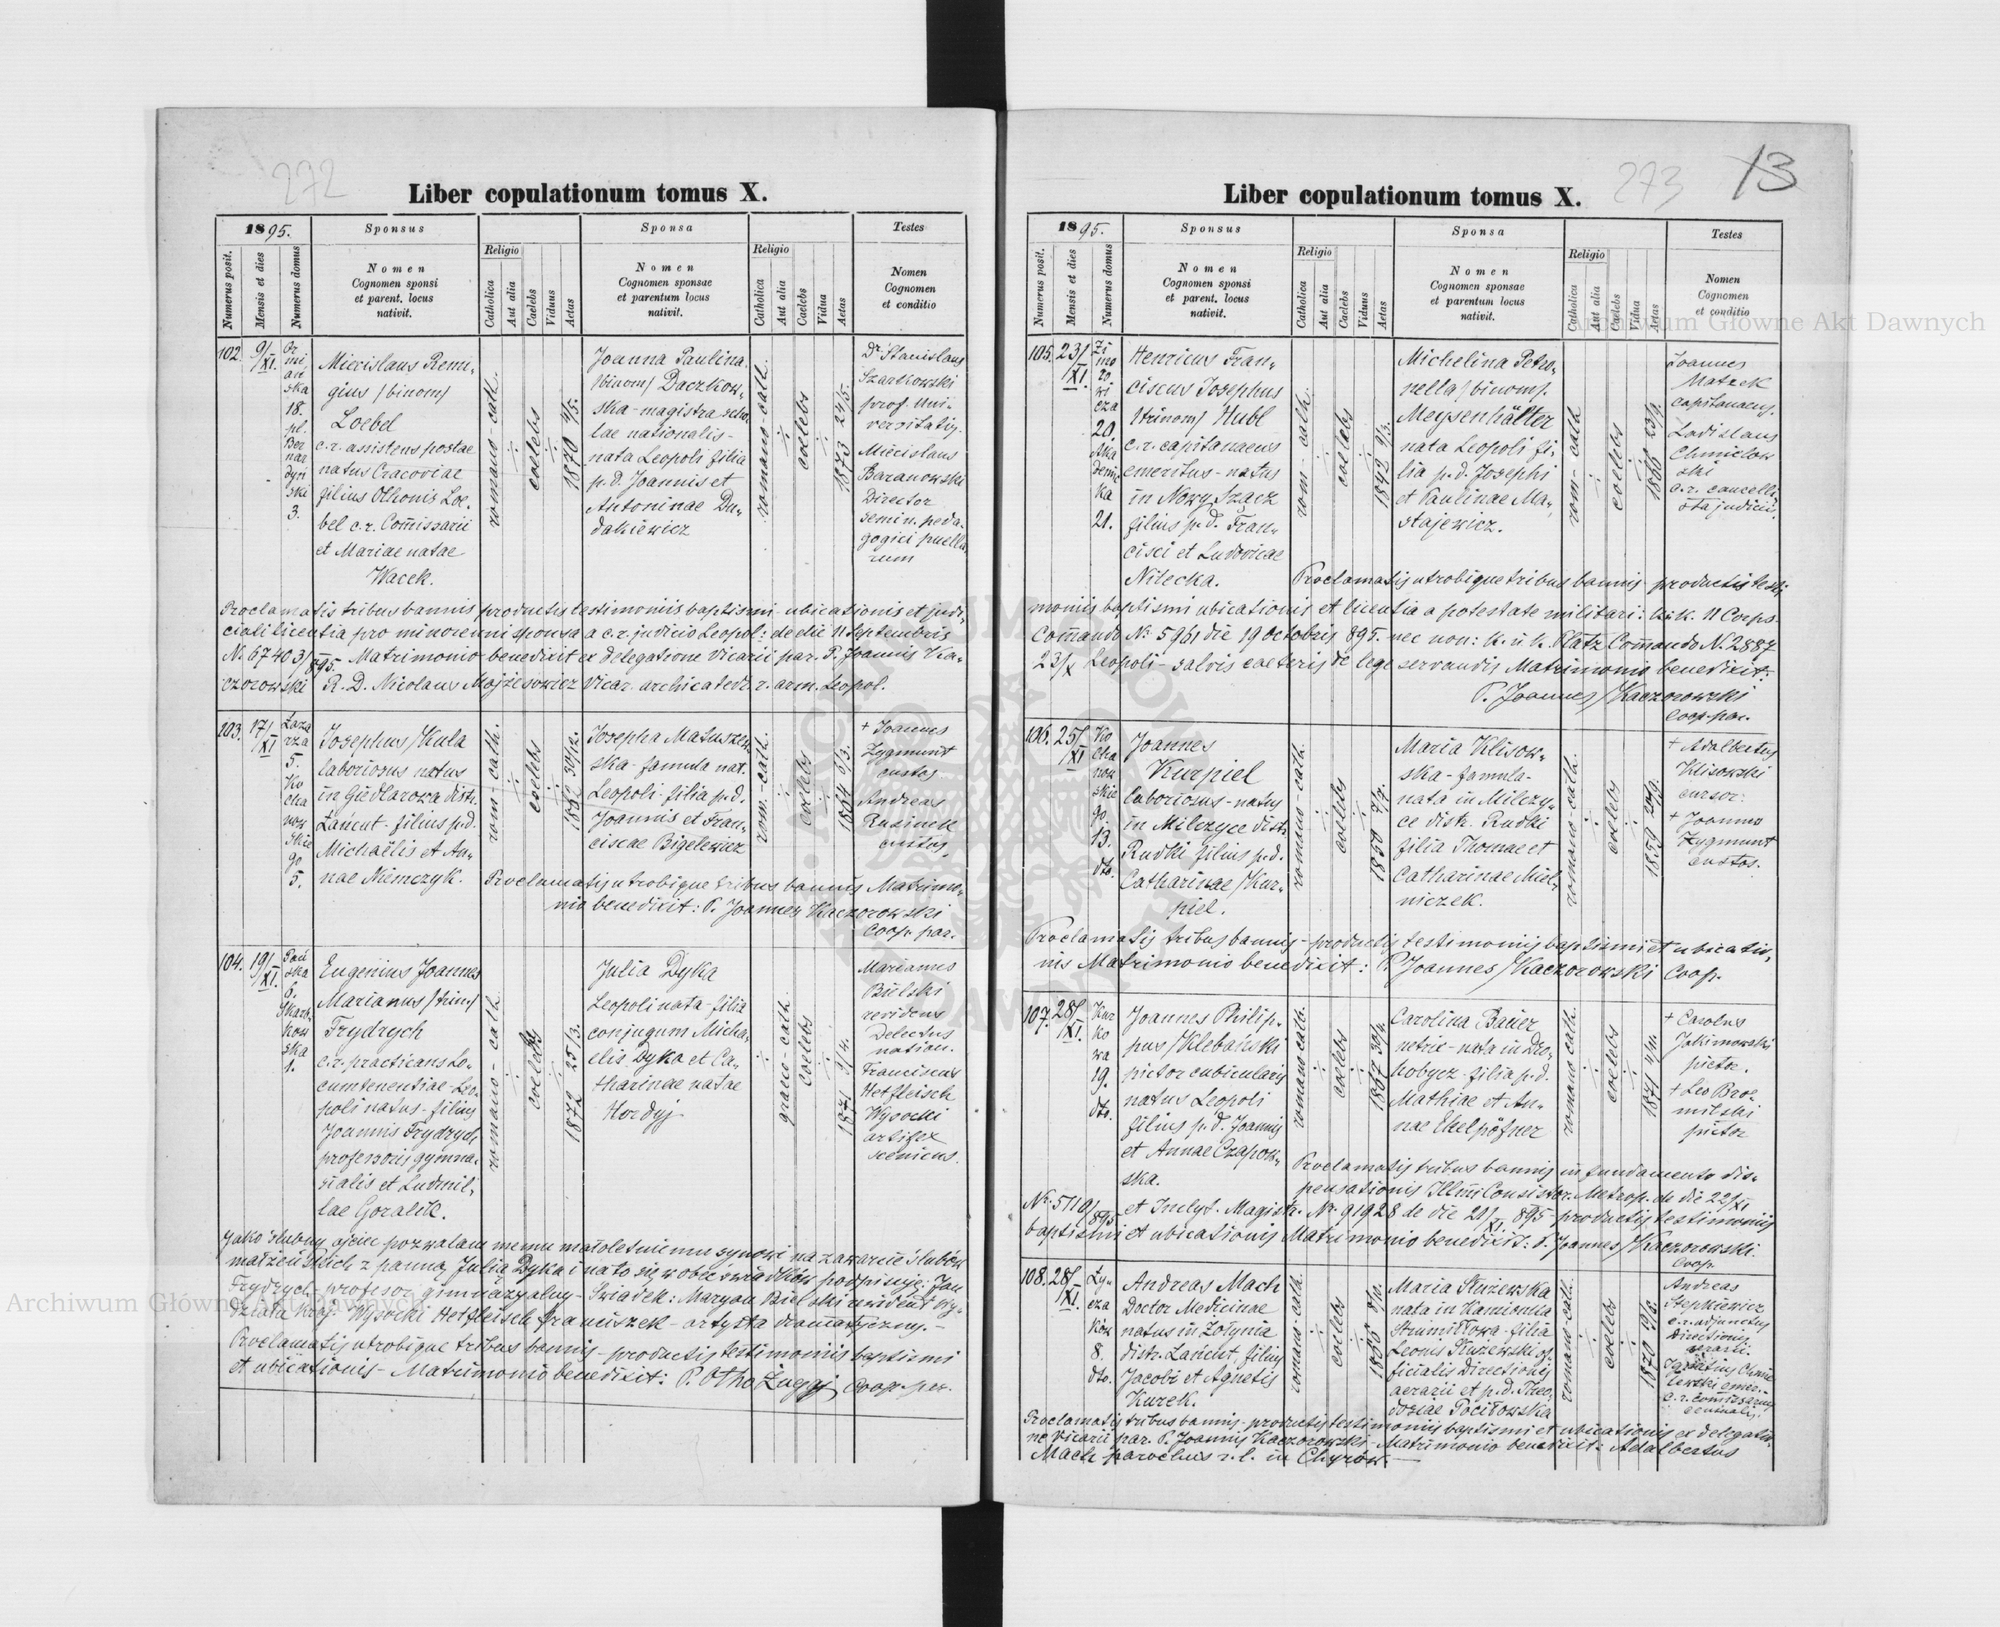 272
Liber copulationum tomus X.
1895.
Sponsus
Sponsa
Testes
Numerus posit.
Mensis et dies
Numerus domus
Nomen
Cognomen sponsi
et parent. locus
nativit.
Religio
Catholica
Aut alia
Caelebs
Viduus
Aetas
Nomen
Cognomen sponsae
et parentum locus
nativit.
Religio
Catholica
Aut alia
Caelebs
Vidua
Aetas
Nomen
Cognomen
et conditio
102.
9/XI.
Or
mi
ań
ska
18.
pl.
Ber
nar
dyń
ski
3.
Miecislaus Remi-
gius /binom/
Loebel
c.r. assistens postae
natus Cracoviae
filius Othonis Loe-
bel c.r. Commissarii
et Mariae natae
Wacek.
romano - cath.
coelebs
1870 4/5.
Joanna Paulina
/binom/ Daczkow-
ska - magistra scho
lae nationalis -
nata Leopoli filia
p.d. Joannis et
Antoninae Du-
dakiewicz
romano - cath.
coelebs
1873 24/5.
Dr Stanislaus
Szarkowski
prof. Uni-
versitatis.
Miecislaus
Baranowski
Director
semin. peda-
gogici puella
rum
Proclamatis tribus bannis productis testimoniis baptismi - ubicationis et judi-
ciali licentia pro minorenni sponsa a c.r. judicio Leopol: de die 11 Septembris
N. 67403/895. Matrimonio benedixit ex delegatione Vicarii par. P. Joannis Ka-
czorowski R. D. Nicolaus Mojzesowicz Vicar. archicatedr. r. arm. Leopol.
103.
17/XI
Łaza
rza
5.
Ko
cha
now
skie
go
5.
Josephus Kula
laboriosus natus
in Giedlarowa distr.
Łańcut - filius p.d.
Michaëlis et An-
nae Niemczyk.
rom - cath.
coelebs
1862 30/12.
Josepha Matuszew-
ska - famula nat.
Leopoli - filia p.d.
Joannis et Fran-
ciscae Bigelewicz
rom. - cath.
coelebs
1864 6/3.
+ Joannes
Zygmunt
custos
Andreas
Rusinek
custos.
Proclamatis utrobique tribus bannis Matrimo-
nio benedixit: P. Joannes Kaczorowski
Coop. par.
104.
19/XI.
Pań
ska
6.
Skarb-
kow
ska
1.
Eugenius Joannes
Marianus /trin/
Frydrych
c.r. practicans Lo-
cumtenentiae - Leo-
poli natus - filius
Joannis Frydrych
professoris gymna-
sialis et Ludmil-
lae Goralik.
romano - cath.
coelebs
1872 25/3.
Julia Dyka
Leopoli nata - filia
conjugum Micha-
elis Dyka et Ca-
tharinae natae
Hordyj
graeco - cath.
coelebs
1871 9/4.
Marianus
Bielski
revidens
Delectus
nation.
Franciscus
Hetfleisch
Wysocki
artifex
scenicus.
Jako ślubny ojciec pozwalam memu małoletniemu synowi na zawarcie ślubów
małżeńskich z panną Julią Dyka i na to się wobec świadków podpisuję: Jan
Frydrych profesor gimnazyalny - Świadek: Maryan Bielski rewident Wy-
działu kraj. Wysocki Hetfleisch franciszek - artysta dramatyczny. -
Proclamatis utrobique tribus bannis - productis testimoniis baptismi
et ubicationis - Matrimonio benedixit: P. Otho Coop. par.
273
13
Liber copulationum tomus X.
1895.
Sponsus
Sponsa
Testes
Numerus posit.
Mensis et dies
Numerus domus
Nomen
Cognomen sponsi
et parent. locus
nativit.
Religio
Catholica
Aut alia
Caelebs
Viduus
Aetas
Nomen
Cognomen sponsae
et parentum locus
nativit.
Religio
Catholica
Aut alia
Caelebs
Vidua
Aetas
Nomen
Cognomen
et conditio
105.
23/XI.
Zi
mo
ro
wi
cza
20.
Aka
demic
ka
21.
Henricus Fran-
ciscus Josephus
/trinom/ Hubl
c.r. capitanaeus
emeritus - natus
in Nowy Szącz
filius p.d. Fran-
cisci et Ludovicae
Nitecka.
rom - cath.
coelebs
1842 9/3.
Michelina Petro-
nella /binom/.
Meysenhälter
nata Leopoli fi-
lia p.d. Josephi
et Paulinae Ma-
stajewicz.
rom - cath
coelebs
1866 23/9.
Joannes
Matzek
capitanaeus.
Ladislaus
Chmielow
ski
c.r. cancelli-
sta judicii.
Proclamatis utrobique tribus bannis productis testi-
moniis baptismi ubicationis et licentia a potestate militari: k.i.k. 11 Corps.
Commando N: 5961 die 19 Octobris 895. nec non: k. u. k. Platz Commando N. 2887
23/X Leopoli - salvis caeteris de lege servandis Matrimonio benedixit:
P. Joannes Kaczorowski
Coop. par.
106.
25/XI
Ko
cha
now
skie
go.
13.
dto.
Joannes
Kurpiel
laboriosus - natus
in Milczyce distr.
Rudki filius p.d.
Catharinae Kur-
piel.
romano - cath.
coelebs
1850 7/7.
Maria Klisow-
ska - famula -
nata in Milczy-
ce distr. Rudki
filia Thomae et
Catharinae Miel-
niczek.
romano - cath.
coelebs
1859 24/9.
+ Adalbertus
Klisowski
cursor.
+ Joannes
Zygmunt
custos.
Proclamatis tribus bannis - productis testimoniis baptismi et ubicatio-
nis Matrimonio benedixit: P. Joannes Kaczorowski Coop.
107.
28/XI.
Kur
ko
wa
19.
dto.
Joannes Philip-
pus Klebański
pictor cubicularis
natus Leopoli
filius p.d. Joannis
et Annae Czapow-
ska.
romano - cath.
coelebs
1867 30/4.
Carolina Bauer
netrix - nata in Dro-
hobycz - filia p.d.
Mathiae et An-
nae Ekelpöfner
romano - cath.
coelebs
1871 4/11.
+ Carolus
Jakimowski
pictor.
+ Leo Bro-
milski
pictor
Proclamatis tribus bannis in fundamento dis-
pensationis Illmi Consistor. Metrop. de die 22/XI
Nr. 5110/895 et Inclyt. Magistr. Nr. 91928 de die 21/XI. 895 productis testimoniis
baptismi et ubicationis Matrimonio benedixit: P. Joannes Kaczorowski.
Coop.
108.
28/XI.
Ły-
cza
kow
8.
dto.
Andreas Mach
Doctor Medicinae
natus in Zołynia
distr. Łańcut, filius
Jacobi et Agnetis
Kurek.
romano - cath.
coelebs
1865 8/11.
nata in Kamionka
Strumiłłowa - filia
ficialis Directionis
aerarii et p.d. Theo-
dosiae Pociłowska
romano - cath.
coelebs
1870
Andreas
Stepkiewicz
c.r. adjunctus
Directionis
aerarii.
Proclamatis tribus bannis - productis testimoniis baptismi et ubicationis ex delegatio-
ne Vicarii par. P. Joannis Kaczorowski - Matrimonio benedixit: Adalbertus
Mach parochus r. l. in Chyrów. -
Archiwum Główne Akt Dawnych
Archiwum Główne Akt Dawnych